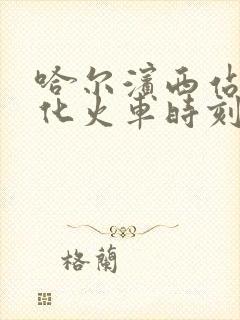 哈尔濱西佔
化火車時刻
格蘭